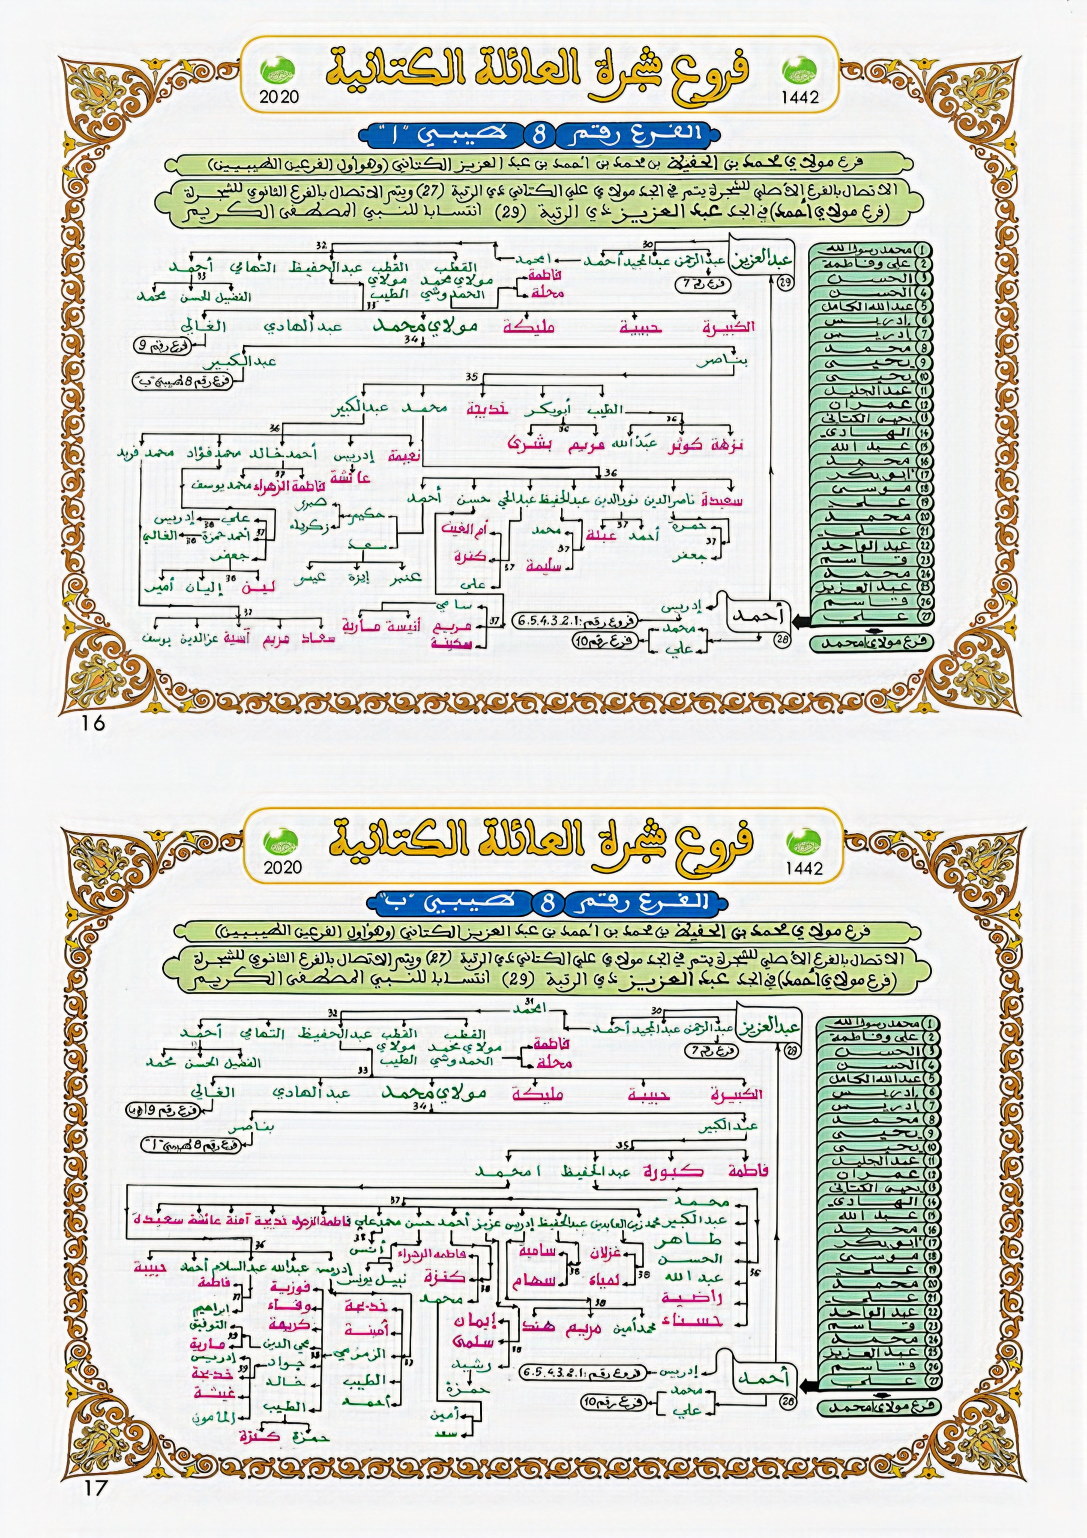 فروع شجرة العائلة الكتانية
2020
1442
الفرع رقم 8 طيبي "أ"
فرع مولاي محمد بن الحفيظ بن محمد بن أحمد بن عبد العزيز الكتاني (وهو أول الفرعين الطيبيين)
الاتصال بالفرع الأصلي للشجرة يتم في الجد مولاي علي الكتاني ذي الرتبة (27) ويتم الاتصال بالفرع الثانوي للشجرة
(فرع مولاي أحمد) في الجد عبد العزيز ذي الرتبة (29) انتسابا للنبي المصطفى الكريم
1 محمد رسول الله
2 علي وفاطمة
3 الحسن
4 الحسن
5 عبد الله الكامل
6 إدريس
7 إدريس
8 محمد
9 يحيى
10 يحيى
11 عبد الجليل
12 عمران
13 يحيى الكتاني
14 الهادي
15 عبد الله
16 محمد
17 أبو بكر
18 موسى
19 علي
20 محمد
21 علي
22 عبد الواحد
23 قاسم
24 محمد
25 عبد العزيز
26 قاسم
27 علي
فرع مولاي امحمد
عبد العزيز 29
30
عبد الرحمن عبد المجيد أحمد
فرع رقم 7
امحمد
فاطمة
محلة
32
القطب مولاي محمد الحمدوشي
القطب مولاي الطيب
عبد الحفيظ التهامي أحمد
33
الفضيل الحسن محمد
33
الكبيرة حبيبة مليكة مولاي محمد عبد الهادي الغالي
فرع رقم 9
34
بناصر
عبد الكبير
فرع رقم 8 طيبي "ب"
35
الطيب أبوبكر خديجة محمد عبد الكبير
36
نزهة كوثر عبد الله
36
مريم بشرى
36
نعيمة إدريس أحمد خالد محمد فؤاد محمد فريد
37
عائشة
فاطمة الزهراء محمد يوسف
36
سعيدة ناصر الدين نور الدين عبد الحفيظ عبد الحي حسن أحمد
37
حمزة
جعفر
37
أحمد عبلة
37
محمد
سليمة
37
أم الغيث
كنزة
علي
حكيم
صبري
زكرياء
سعد
عنبر إيزة عيسى
37
علي
أحمد حمزة
جعفر
38
إدريس
الغالي
38
لين إليان أمير
37
سعاد مريم آسية عز الدين يوسف
37
سامي
مريم
سكينة
أنيسة مارية
أحمد 28
إدريس
فرع رقم: 6.5.4.3.2.1
محمد
علي
فرع رقم 10
16
فروع شجرة العائلة الكتانية
2020
1442
الفرع رقم 8 طيبي "ب"
فرع مولاي محمد بن الحفيظ بن محمد بن أحمد بن عبد العزيز الكتاني (وهو أول الفرعين الطيبيين)
الاتصال بالفرع الأصلي للشجرة يتم في الجد مولاي علي الكتاني ذي الرتبة (27) ويتم الاتصال بالفرع الثانوي للشجرة
(فرع مولاي أحمد) في الجد عبد العزيز ذي الرتبة (29) انتسابا للنبي المصطفى الكريم
1 محمد رسول الله
2 علي وفاطمة
3 الحسن
4 الحسن
5 عبد الله الكامل
6 إدريس
7 إدريس
8 محمد
9 يحيى
10 يحيى
11 عبد الجليل
12 عمران
13 يحيى الكتاني
14 الهادي
15 عبد الله
16 محمد
17 أبو بكر
18 موسى
19 علي
20 محمد
21 علي
22 عبد الواحد
23 قاسم
24 محمد
25 عبد العزيز
26 قاسم
27 علي
فرع مولاي امحمد
عبد العزيز 29
30
عبد الرحمن عبد المجيد أحمد
فرع رقم 7
31
امحمد
فاطمة
محلة
32
القطب مولاي محمد الحمدوشي
القطب مولاي الطيب
عبد الحفيظ التهامي أحمد
الفضيل الحسن محمد
33
الكبيرة حبيبة مليكة مولاي محمد عبد الهادي الغالي
34
عبد الكبير
بناصر
فرع رقم 8 طيبي "أ"
35
فاطمة كبورة عبد الحفيظ امحمد
36
محمد
عبد الكبير
طاهر
الحسن
عبد الله
راضية
حسناء
37
محمد زين العابدين عبد الحفيظ إدريس عزيز أحمد حسن محمد علي فاطمة الزهراء خديجة آمنة عائشة سعيدة
38
غزلان
لمياء
38
سامية
سهام
38
محمد أمين مريم هند
38
إيمان
سلمى
رشيد
حمزة
38
فاطمة الزهراء
كنزة
محمد
أمين
سعد
38
أنس
نبيل يونس
36
إدريس عبد الله عبد السلام أحمد حبيبة
37
خديجة
أمينة
الزمزمي
الطيب
أحمد
فوزية
وفاء
كريمة
محيي الدين
جواد
خالد
الطيب
حمزة كنزة
37
فاطمة
ابراهيم
39
التوفيق
مارية
39
إدريس
خديجة
غيثة
المامون
أحمد 28
إدريس
فرع رقم: 6.5.4.3.2.1
محمد
علي
فرع رقم 10
17